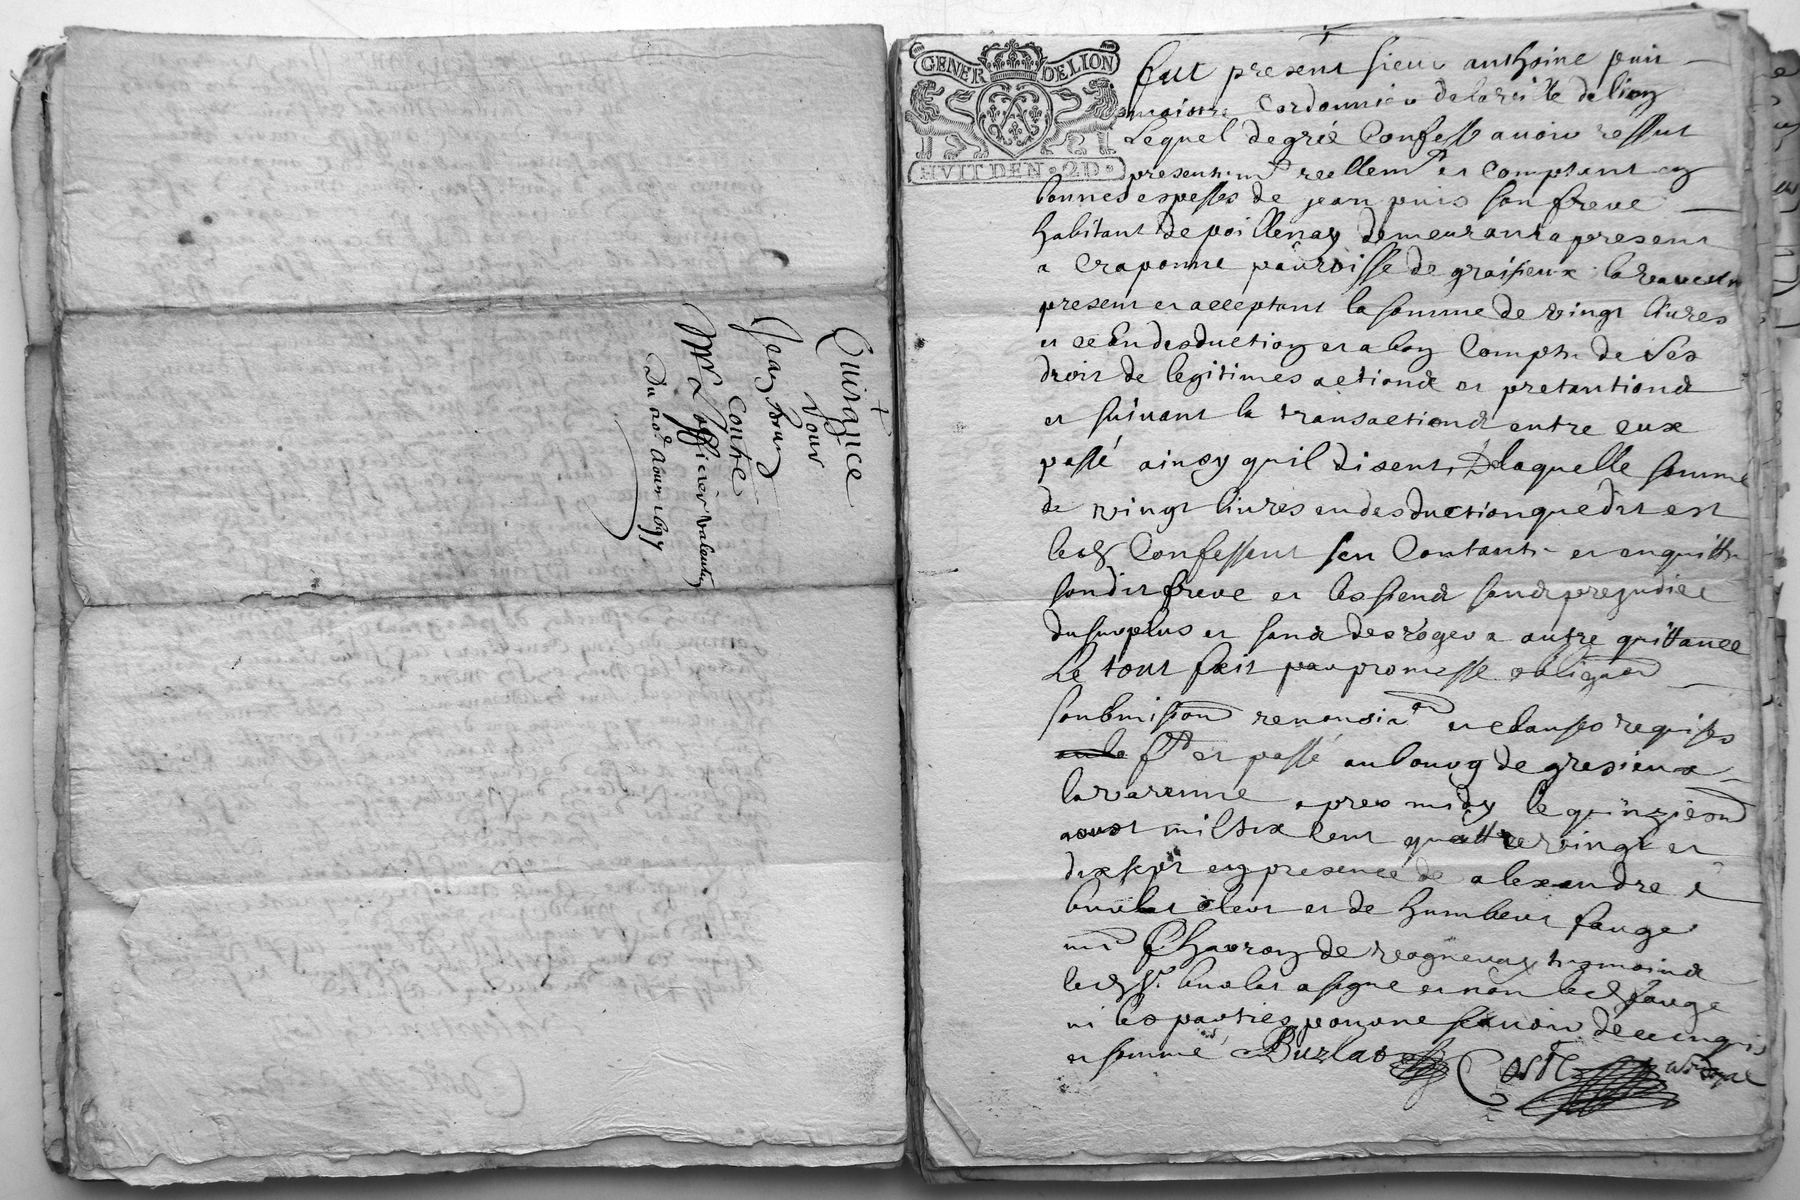 Quitance
pour
Jean
contre
Mre L'officier Valentin
Du aoust 1697
GENER DE LION
HVIT DEN · 2D ·
Fut present sieur anthoine puis
maistre Cordonnier de la ville de lion
Lequel de gré Confesse avoir ressut
presentemt reellemt et comptant en
bonnes espesses de jean puis son frere
habitant de poillenay demeurant a present
a Craponne parroisse de graisieux la varenne
present et acceptant la somme de vingt livres
et ce En desduction et a bon Compte de ses
droit de legitimes actions et pretantions
et suivant la transactions entre eux
passé ainsy quil disent, De laquelle somme
de vingt livres en desduction que dit est
led Confessant sen Contante et en quitte
son dit frere et les siens sans prejudice
du surplus et sans desroger a autre quittance
Le tout fait par promesse obligaon
soubmission renonsiaon et clauses requises
ft et passé au bourg de gresieux
la varenne apres midy le quinzieme
aoust mil six cent quattre vingt et
dix sept en presence de alexandre
buirlas clerc et de humbert fauge
md Charon de vaugneray tesmoins
led sr. buirlas a signé et non led fauge
ni les parties pour ne scavoir de ce enquis
et sommé Burlas Coste